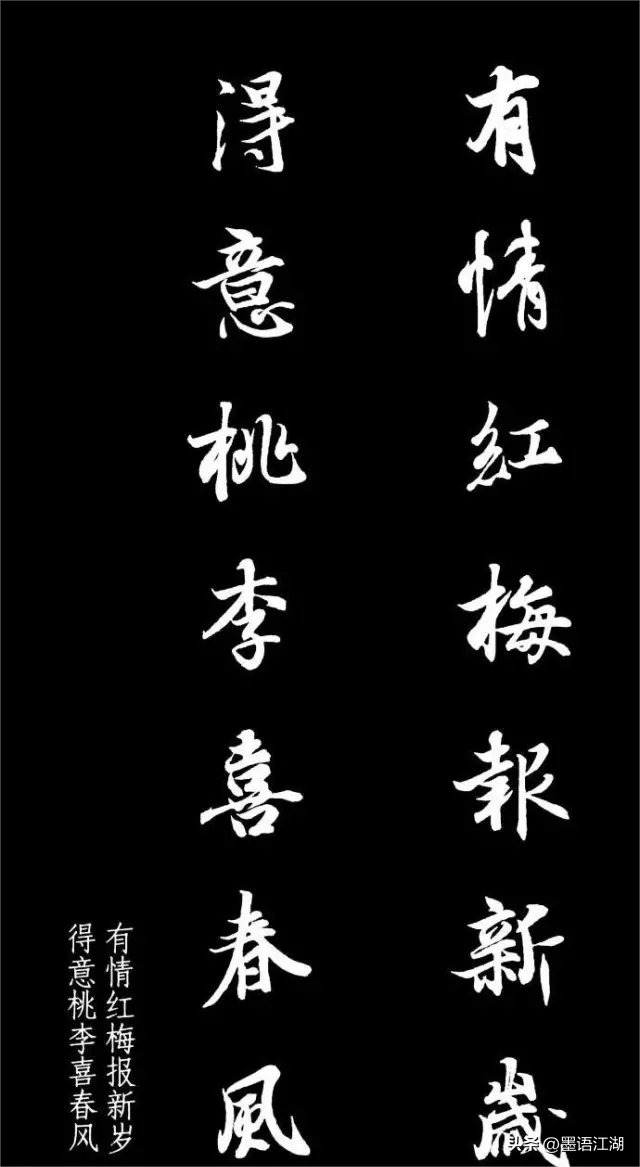 有情紅梅報新歲
得意桃李喜春風
有情红梅报新岁
得意桃李喜春风
头条@墨语江湖